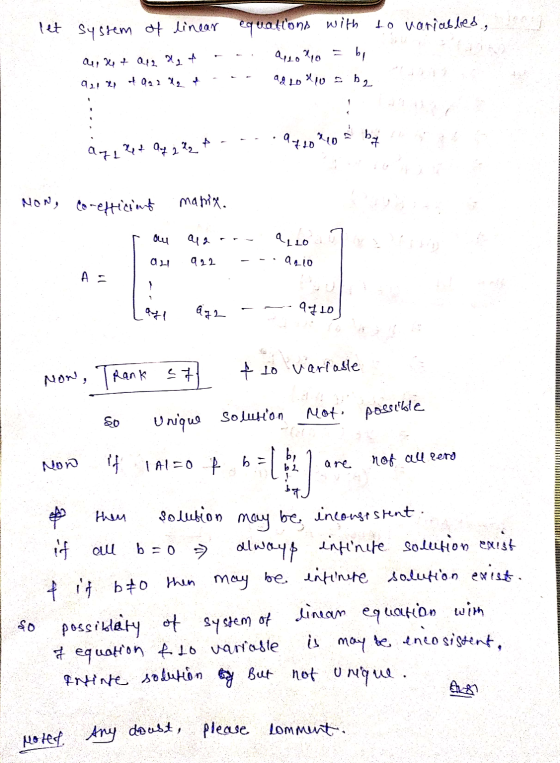 let system of linear equations with 10 variables,
a11 x1 + a12 x2 + - - - a110 x10 = b1
a21 x1 + a22 x2 + - - - a210 x10 = b2
a71 x1 + a72 x2 + - - - - a710 x10 = b7
NOW, co-efficient matrix.
a11 a12 - - - a110
a21 a22 - - - a210
A =
a71 a72 - - - a710
Now, Rank ≤ 7 & 10 variable
so unique solution Not. possible
Now if |A|=0 & b = [b1 b2 b7] are not all zero
then solution may be, inconsistent.
if all b = 0 ⇒ always infinite solution exist
& if b≠0 then may be infinite solution exist.
so possiblity of system of linear equation with
7 equation & 10 variable is may be incosistent,
infinte solution But not unique.
Ans
Note: Any doubt, please comment.